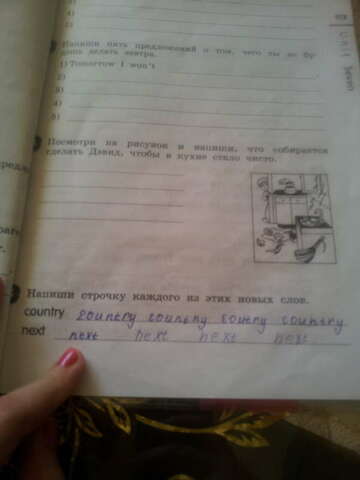 3)
4)
5)
UNIT
Seven
Напиши пять предложений о том, чего ты не бу-
дешь делать завтра.
1) Tomorrow I won't
2)
3)
4)
5)
Посмотри на рисунок и напиши, что собирается
сделать Дэвид, чтобы в кухне стало чисто.
Напиши строчку каждого из этих новых слов.
country country country country country
next next next next next